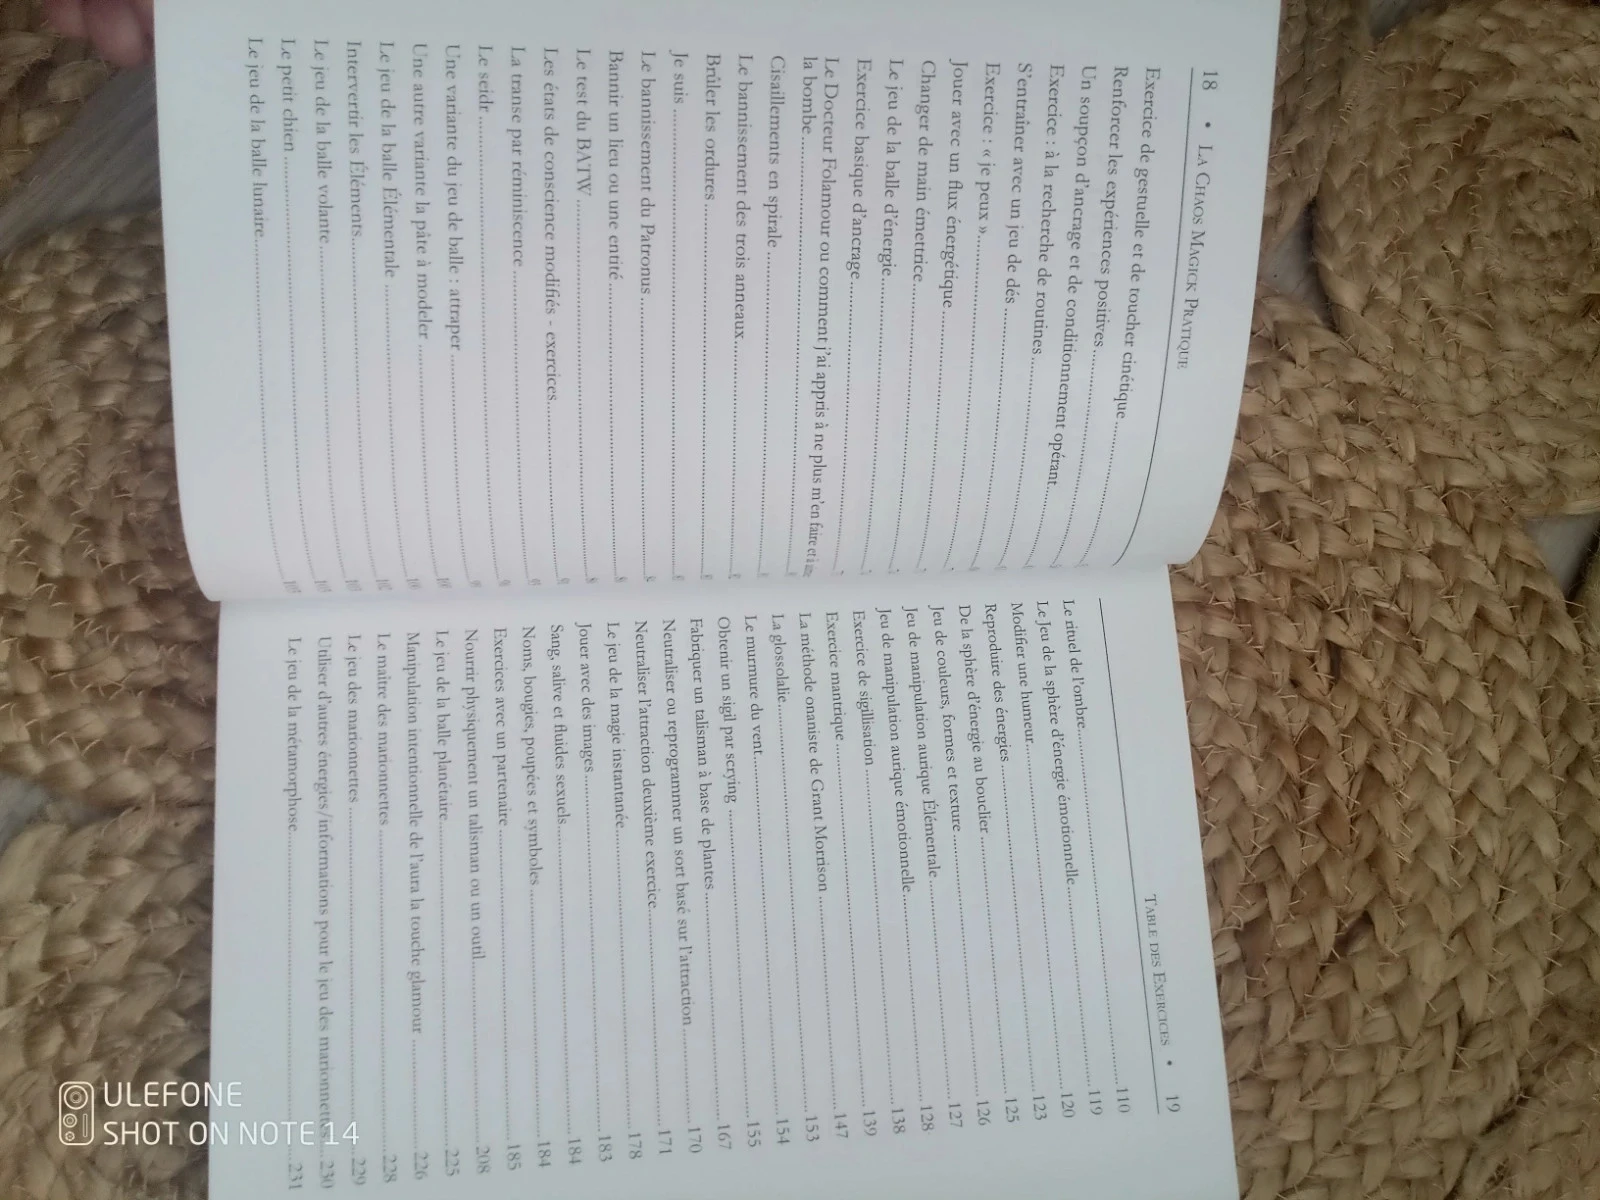 18 • La Chaos Magick Pratique
Exercice de gestuelle et de toucher cinétique
Renforcer les expériences positives
Un soupçon d'ancrage et de conditionnement opérant
Exercice : à la recherche de routines
S'entraîner avec un jeu de dés
Exercice : « je peux »
Jouer avec un flux énergétique
Changer de main émettrice
Le jeu de la balle d'énergie
Exercice basique d'ancrage
Le Docteur Folamour ou comment j'ai appris à ne plus m'en faire et à
la bombe
Cisaillements en spirale
Le bannissement des trois anneaux
Brûler les ordures
Je suis
Le bannissement du Patronus
Bannir un lieu ou une entité
Le test du BATW
Les états de conscience modifiés - exercices
La transe par réminiscence
Le seidr
Une variante du jeu de balle : attraper
Une autre variante la pâte à modeler
Le jeu de la balle Élémentale
Intervertir les Éléments
Le jeu de la balle volante
Le petit chien
Le jeu de la balle lunaire
Table des Exercices • 19
Le rituel de l'ombre 110
Le Jeu de la sphère d'énergie émotionnelle 119
Modifier une humeur 120
Reproduire des énergies 123
De la sphère d'énergie au bouclier 125
Jeu de couleurs, formes et texture 126
Jeu de manipulation aurique Élémentale 127
Jeu de manipulation aurique émotionnelle 128
Exercice de sigillisation 138
Exercice mantrique 139
La méthode onaniste de Grant Morrison 147
La glossolalie 153
Le murmure du vent 154
Obtenir un sigil par scrying 155
Fabriquer un talisman à base de plantes 167
Neutraliser ou reprogrammer un sort basé sur l'attraction 170
Neutraliser l'attraction deuxième exercice 171
Le jeu de la magie instantanée 178
Jouer avec des images 183
Sang, salive et fluides sexuels 184
Noms, bougies, poupées et symboles 184
Exercices avec un partenaire 185
Nourrir physiquement un talisman ou un outil 208
Le jeu de la balle planétaire 225
Manipulation intentionnelle de l'aura la touche glamour 226
Le maître des marionnettes 228
Le jeu des marionnettes 229
Utiliser d'autres énergies/informations pour le jeu des marionnettes 230
Le jeu de la métamorphose 231
ULEFONE
SHOT ON NOTE 14